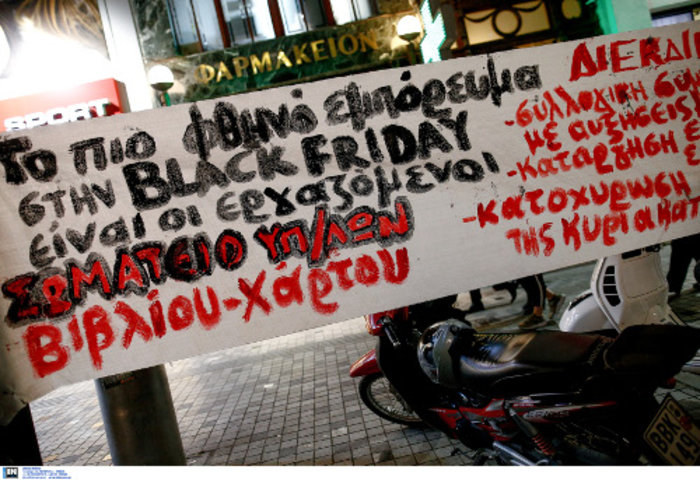 SPORT
ΦΑΡΜΑΚΕΙΟΝ
Το πιο φθηνό εμπόρευμα
στην BLACK FRIDAY
είναι οι εργαζόμενοι
ΣΩΜΑΤΕΙΟ ΥΠ/ΛΩΝ
Βιβλίου-Χάρτου
ΔΙΕΚΔΙ
-συλλογική
με αυξήσεις
-κατάργηση
-κατοχύρωση
της Κυριακάτ